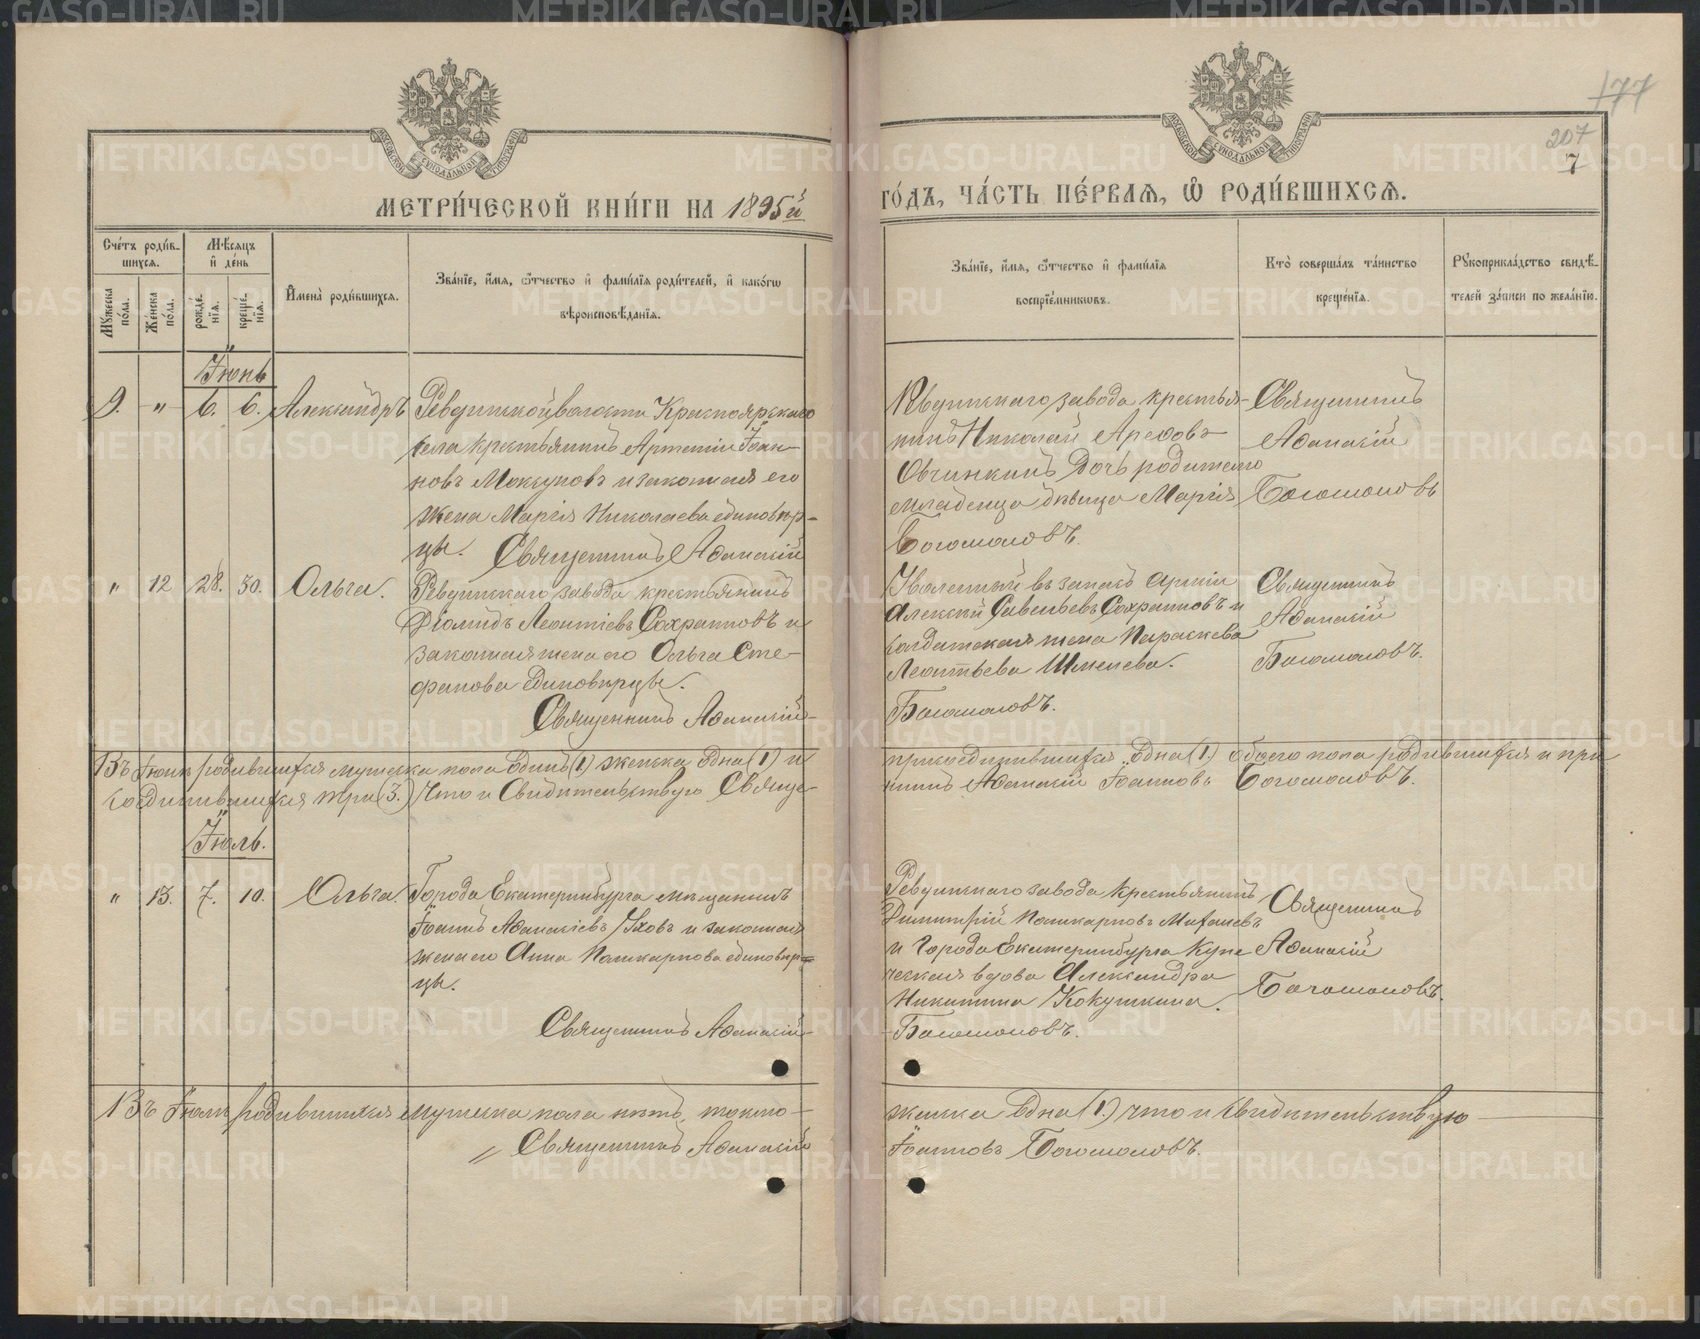 177
207
7
МОСКОВСКОЙ СУНОДАЛЬНОЙ ТИПОГРАФІИ
МОСКОВСКОЙ СУНОДАЛЬНОЙ ТИПОГРАФІИ
МЕТРИ́ЧЕСКОЙ КНИ́ГИ НА 1895й
ГО́ДЪ, ЧА́СТЬ ПЕ́РВАЯ, Ѽ РОДИ́ВШИХСЯ.
Сче́тъ роди́в-
шихся.
Мѣ́сяцъ
и҆ де́нь
Му́жеска по́ла.
Же́нска по́ла.
рожде́нїя.
креще́нїя.
И҆мена̀ роди́вшихся.
Зва́нїе, и҆́мя, ѻ҆́тчество и҆ фами́лїя роди́телей, и҆ како́гѡ
вѣроисповѣ́данїя.
Зва́нїе, и҆́мя, ѻ҆́тчество и҆ фами́лїя
воспрїе́мникѡвъ.
Кто̀ соверша́лъ та́инство
креще́нїя.
Рꙋкоприкла́дство свидѣ́-
телей за́писи по жела́нїю.
Іюнь
9. " 6. 6. Александръ
Ревдинской волости Красноярскаго
села крестьянинъ Артемій Іоан-
новъ Мокцуповъ и законная его
жена Марія Николаева единовѣр-
цы. Священникъ Аѳанасій
Ревдинскаго завода крестья-
нинъ Николай Арефовъ
Овчинкинъ дочь родителю
младенца дѣвица Марія
Богомоловъ.
Священникъ
Аѳанасій
Богомоловъ
" 12 28. 30. Ольга.
Ревдинскаго завода крестьянинъ
Діомидъ Леонтіевъ Сохранновъ и
законная жена его Ольга Сте-
фанова единовѣрцы.
Священникъ Аѳанасій
Уволенный въ запасъ арміи
Алексѣй Савельевъ Сохранновъ и
солдатская жена Параскева
Леонтьева Шмелева.
Богомоловъ.
Священникъ
Аѳанасій
Богомоловъ.
Въ Іюнѣ родившихся мужеска пола одинъ (1) женска одна (1) и
присоединившихся одна (1.) обоего пола родившихся и при
соединившихся три (3.) Что и Свидѣтельствую Священ-
никъ Аѳанасій Іоанновъ Богомоловъ.
Іюль.
" 13. 7. 10. Ольга.
Города Екатеринбурга мѣщанинъ
Іоаннъ Аѳанасіевъ Уховъ и законная
жена его Анна Поликарпова единовѣр-
цы.
Священникъ Аѳанасій
Ревдинскаго завода крестьянинъ
Димитрій Поликарповъ Мигачевъ
и Города Екатеринбурга Купе
ческая вдова Александра
Никитина Кокушкина.
Богомоловъ.
Священникъ
Аѳанасій
Богомоловъ.
Въ Іюлѣ родившихся мужеска пола нѣтъ, токмо-
женска одна (1.) что и свидѣтельствую
" Священникъ Аѳанасій
Іоанновъ Богомоловъ.
METRIKI.GASO-URAL.RU